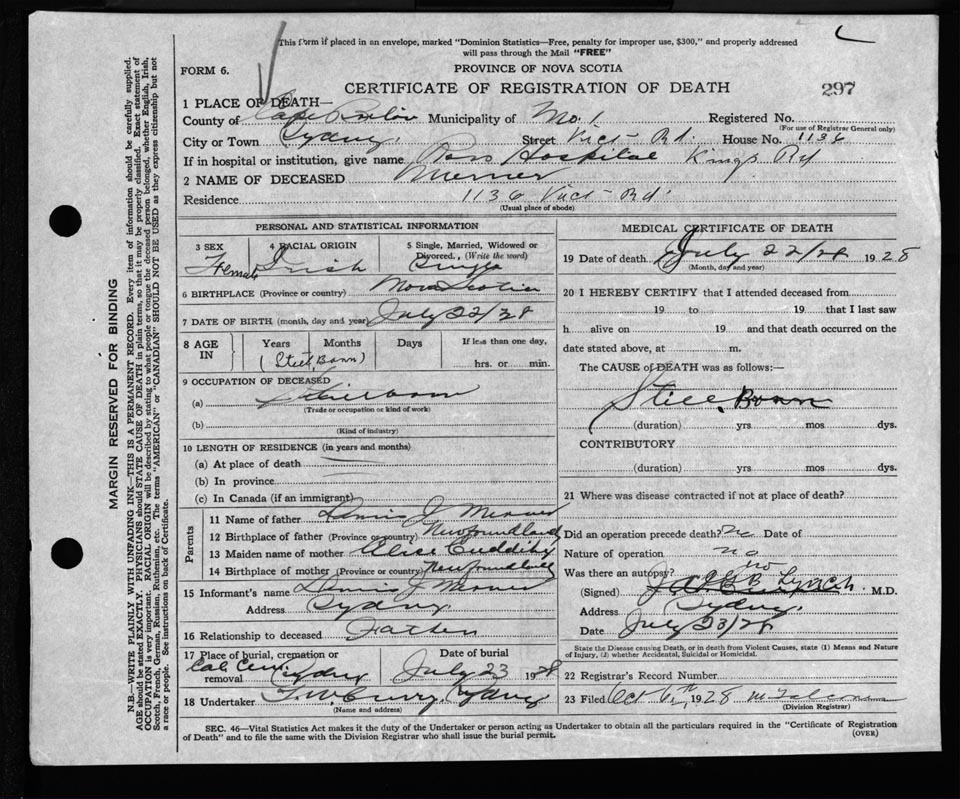 This form if placed in an envelope, marked "Dominion Statistics—Free, penalty for improper use, $300," and properly addressed
will pass through the Mail "FREE"
FORM 6.
PROVINCE OF NOVA SCOTIA
CERTIFICATE OF REGISTRATION OF DEATH
297
1 PLACE OF DEATH—
County of Cape Breton Municipality of No. 1 Registered No.
(For use of Registrar General only)
City or Town Sydney. Street Vict- Rd. House No. 1136
If in hospital or institution, give name Ross Hospital Kings Rd
2 NAME OF DECEASED Merner
Residence 1136 Vict- Rd.
(Usual place of abode)
PERSONAL AND STATISTICAL INFORMATION
3 SEX Female
4 RACIAL ORIGIN Irish
5 Single, Married, Widowed or Divorced. (Write the word) Single
6 BIRTHPLACE (Province or country) Nova Scotia
7 DATE OF BIRTH (month, day and year) July 22/28
8 AGE IN Years Months Days If less than one day, hrs. or min.
(Steel Born)
9 OCCUPATION OF DECEASED
(a) Stillborn
(Trade or occupation or kind of work)
(b)
(Kind of industry)
10 LENGTH OF RESIDENCE (in years and months)
(a) At place of death
(b) In province
(c) In Canada (if an immigrant)
Parents
11 Name of father Dennis J Merner
12 Birthplace of father (Province or country) Newfoundland
13 Maiden name of mother Alice Cuddihy
14 Birthplace of mother (Province or country) Newfoundland
15 Informant's name Dennis J Merner
Address Sydney.
16 Relationship to deceased Father
17 Place of burial, cremation or removal Cal Cem. Sydney
Date of burial July 23 1928
18 Undertaker F. W. Curry, Sydney
(Name and address)
MEDICAL CERTIFICATE OF DEATH
19 Date of death July 22/28 1928
(Month, day and year)
20 I HEREBY CERTIFY that I attended deceased from
19 to 19 that I last saw
h alive on 19 and that death occurred on the
date stated above, at m.
The CAUSE of DEATH was as follows:—
Steel Born
(duration) yrs mos dys.
CONTRIBUTORY
(duration) yrs mos dys.
21 Where was disease contracted if not at place of death?
Did an operation precede death? no Date of
Nature of operation no
Was there an autopsy? no
(Signed) Lynch M.D.
Address Sydney.
Date July 23/28
State the Disease causing Death, or in death from Violent Causes, state (1) Means and Nature
of Injury, (2) whether Accidental, Suicidal or Homicidal.
22 Registrar's Record Number
23 Filed Oct 6th, 1928
(Division Registrar)
SEC. 46—Vital Statistics Act makes it the duty of the Undertaker or person acting as Undertaker to obtain all the particulars required in the "Certificate of Registration
of Death" and to file the same with the Division Registrar who shall issue the burial permit.
(OVER)
MARGIN RESERVED FOR BINDING
N.B.—WRITE PLAINLY WITH UNFADING INK—THIS IS A PERMANENT RECORD. Every item of information should be carefully supplied.
AGE should be stated EXACTLY. PHYSICIANS should STATE CAUSE OF DEATH in plain terms, so that it may be properly classified. Exact statement of
OCCUPATION is very important. RACIAL ORIGIN will be described by stating to what people or tongue the deceased person belonged, whether English, Irish,
Scotch, French, German, Russian, Ruthenian, etc. The terms "AMERICAN" or "CANADIAN" SHOULD NOT BE USED as they express citizenship but not
a race or people. See instructions on back of Certificate.